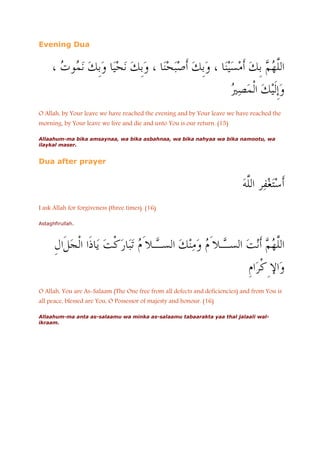 Evening Dua
اللَّهُمَّ بِكَ أَمْسَيْنَا ، وَبِكَ أَصْبَحْنَا ، وَبِكَ نَحْيَا وَبِكَ نَمُوتُ ،
وَإِلَيْكَ الْمَصِيْرُ
O Allah, by Your leave we have reached the evening and by Your leave we have reached the
morning, by Your leave we live and die and unto You is our return. (15)
Allaahum-ma bika amsaynaa, wa bika asbahnaa, wa bika nahyaa wa bika namootu, wa
ilaykal maser.
Dua after prayer
أَسْتَغْفِرُ اللَّهَ
I ask Allah for forgiveness (three times). (16)
Astaghfirullah.
اللَّهُمَّ أَنْتَ السَّـلاَمُ وَمِنْكَ السَّـلاَمُ تَبَارَكْتَ يَاذَا الْجَلاَلِ
وَالإِكْرَامِ
O Allah, You are As-Salaam (The One free from all defects and deficiencies) and from You is
all peace, blessed are You, O Possessor of majesty and honour. (16)
Allaahum-ma anta as-salaamu wa minka as-salaamu tabaarakta yaa thal jalaali wal-
ikraam.